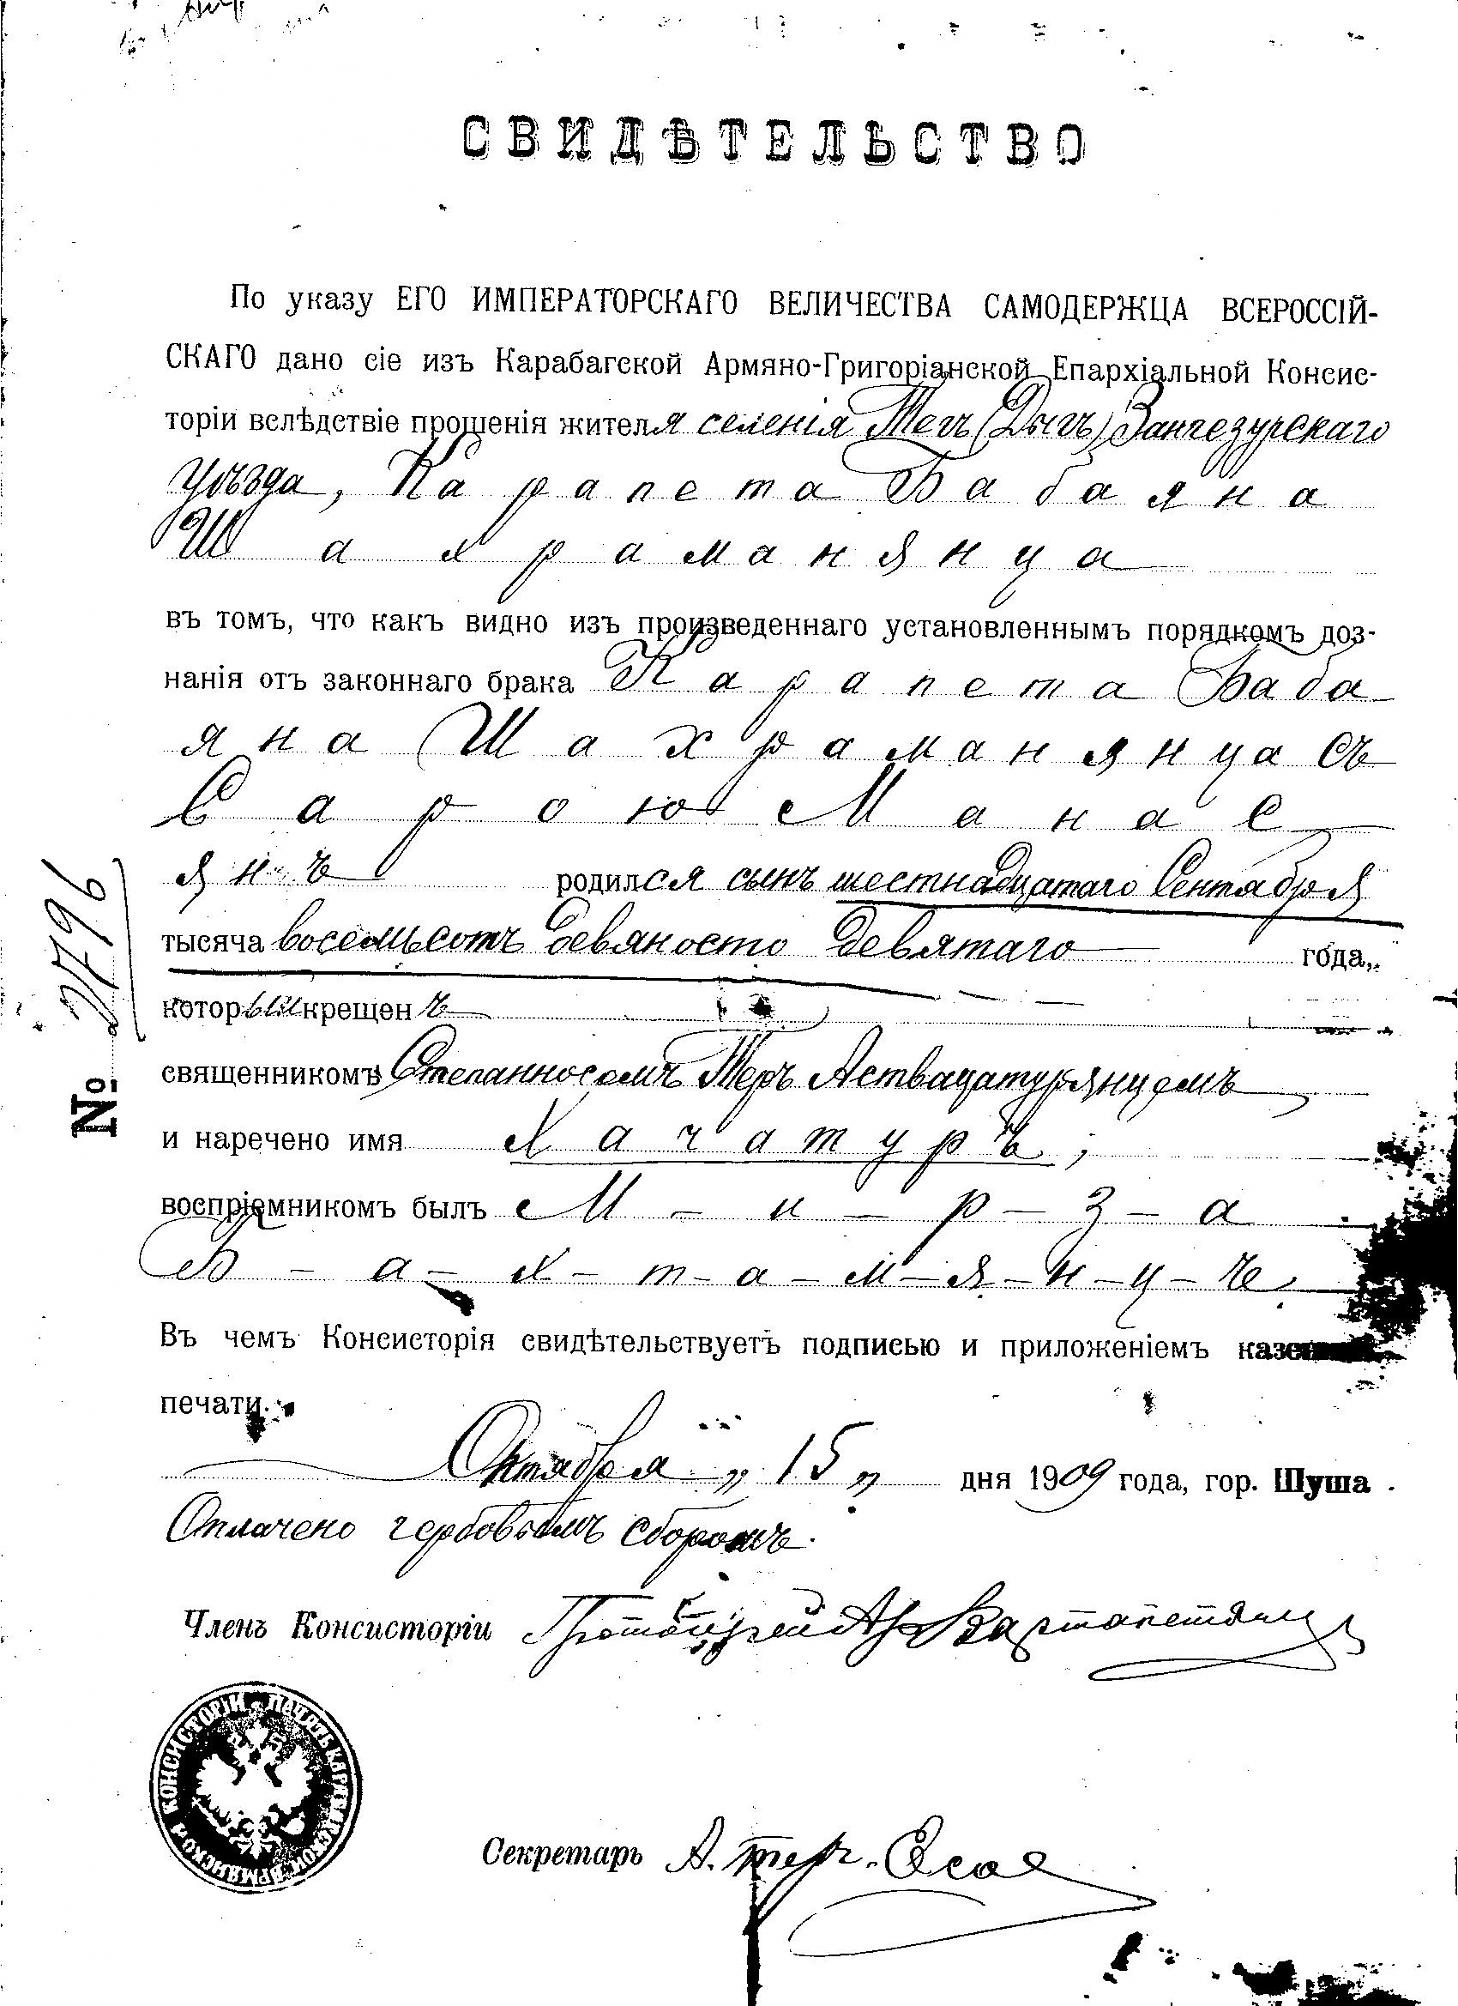 СВИДѢТЕЛЬСТВО
По указу ЕГО ИМПЕРАТОРСКАГО ВЕЛИЧЕСТВА САМОДЕРЖЦА ВСЕРОССІЙ-
СКАГО дано сіе изъ Карабагской Армяно-Григоріанской Епархіальной Консис-
торіи вслѣдствіе прошенія жителя селенія Тегъ (Дыгъ) Зангезурскаго
уѣзда, Карапета Бабаяна
Шахраманянца
въ томъ, что какъ видно изъ произведеннаго установленнымъ порядкомъ доз-
нанія отъ законнаго брака Карапета Баба
яна Шахраманянца съ
Сарою Манас
янъ родился сынъ шестнадцатаго Сентября
тысяча восемьсотъ девяносто девятаго года,
который крещенъ
священникомъ Степанносомъ Теръ Аствацатурянцомъ
и наречено имя Хачатуръ;
воспріемникомъ былъ М-и-р-з-а
Б-а-х-т-а-м-я-н-ц-ъ.
Въ чемъ Консисторія свидѣтельствуетъ подписью и приложеніемъ
печати.
Октября „15„ дня 1909 года, гор. Шуша.
Оплачено гербовымъ сборомъ.
Членъ Консисторіи Протоіерей Вартапетянцъ
Секретарь А. Тер.-Еса
№ 2796
ПЕЧАТЬ КАРАБАГСКОЙ АРМЯНСКОЙ КОНСИСТОРІИ